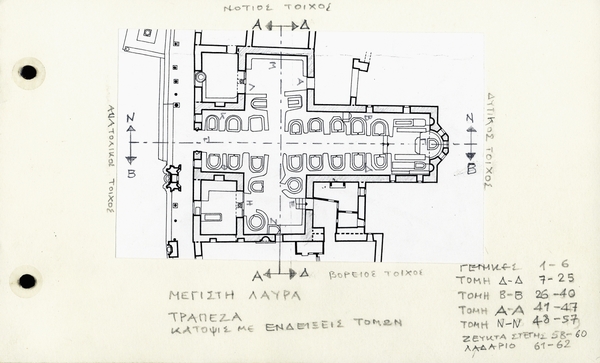 ΝΟΤΙΟΣ ΤΟΙΧΟΣ
Α Δ
Μ
Λ Α
ΑΝΑΤΟΛΙΚΟΣ ΤΟΙΧΟΣ
Ν
Β
ΔΥΤΙΚΟΣ ΤΟΙΧΟΣ
Ν
Β
Η
Ν
Α Δ
ΒΟΡΕΙΟΣ ΤΟΙΧΟΣ
ΜΕΓΙΣΤΗ ΛΑΥΡΑ
ΤΡΑΠΕΖΑ
ΚΑΤΟΨΙΣ ΜΕ ΕΝΔΕΙΞΕΙΣ ΤΟΜΩΝ
ΓΕΝΙΚΕΣ 1-6
ΤΟΜΗ Δ-Δ 7-25
ΤΟΜΗ Β-Β 26-40
ΤΟΜΗ Α-Α 41-47
ΤΟΜΗ Ν-Ν 48-57
ΖΕΥΚΤΑ ΣΤΕΓΗΣ 58-60
ΛΑΔΑΡΙΟ 61-62